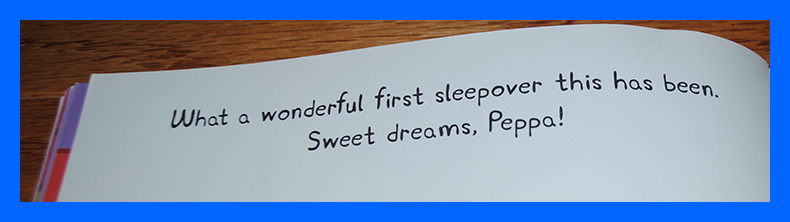 What a wonderful first sleepover this has been.
Sweet dreams, Peppa!